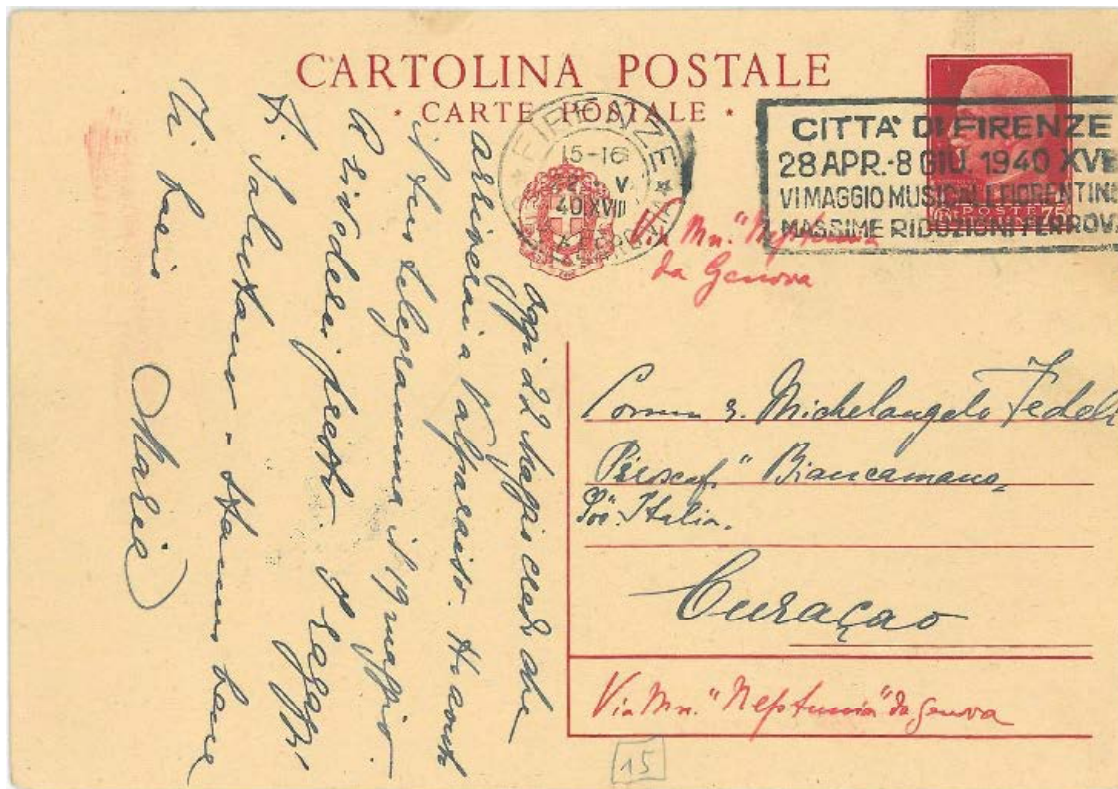 CARTOLINA POSTALE
* CARTE POSTALE *
FIRENZE
15-16
V
40 XVIII
CITTA' DI FIRENZE
28 APR.-8 GIU. 1940 XVI
VI MAGGIO MUSICALE FIORENTIN
MASSIME RIDUZIONI FERROV
POSTE 75
Via Mn. "Neptunia
da Genova
Michelangelo Fedel
Piroscaf." Biancamano„
Soc. Italia.
Curaçao
Via Mn. "Neptunia" da Genova
15
oggi 22 Maggio credo che
arriverai a Valparaiso. Ho avuto
il tuo telegramma il 19 maggio.
Arivederci presto. I ragazzi
ti salutano - stanno bene
Ti bacio
Maria